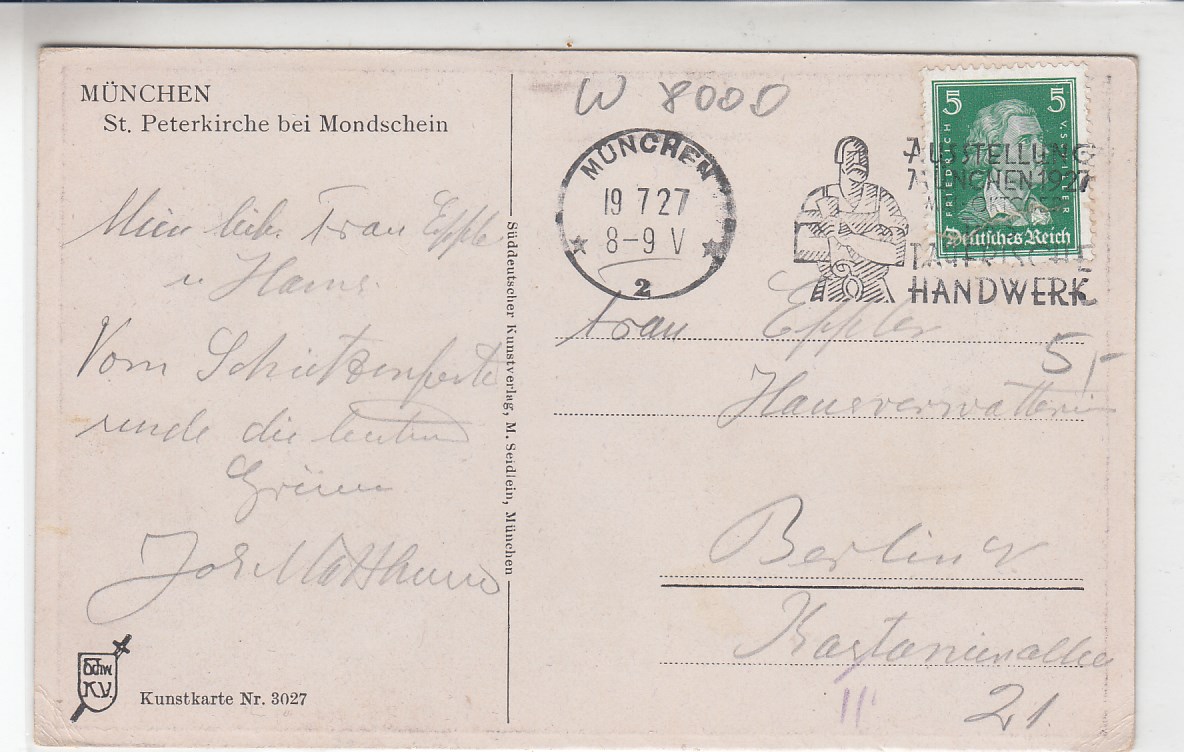 MÜNCHEN
St. Peterkirche bei Mondschein
Mein lieb. Frau Eppler
u. Hans.
Vom Schützenfeste
sende die besten
Grüsse
Süddeutscher Kunstverlag, M. Seidlein, München
Kunstkarte Nr. 3027
W 8000
MÜNCHEN
19 7 27
8-9 V
2
AUSSTELLUNG
MÜNCHEN 1927
BAYERISCHE
HANDWERK
5 5
FRIEDRICH V. SCHILLER
Deutsches Reich
Frau Eppler
5,-
Hausverwalterin
Berlin N.
Kastanienallee
21.